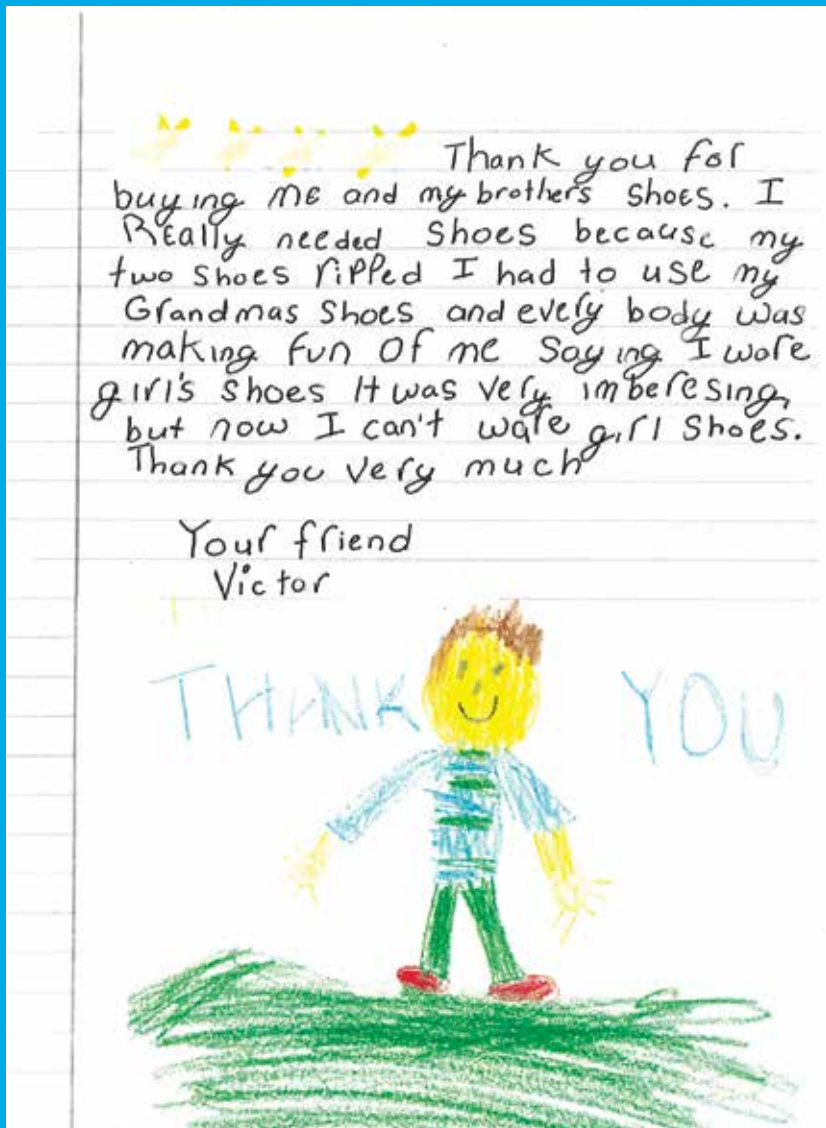 Thank you for
buying me and my brothers shoes. I
Really needed shoes because my
two shoes ripped I had to use my
Grandmas shoes and every body was
making fun of me saying I wore
girl's shoes It was very imberesing,
but now I can't ware girl shoes.
Thank you very much
Your friend
Victor
THANK YOU